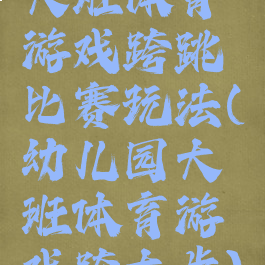 大班体育
游戏跨跳
比赛玩法(
幼儿园大
班体育游
戏跨大步)